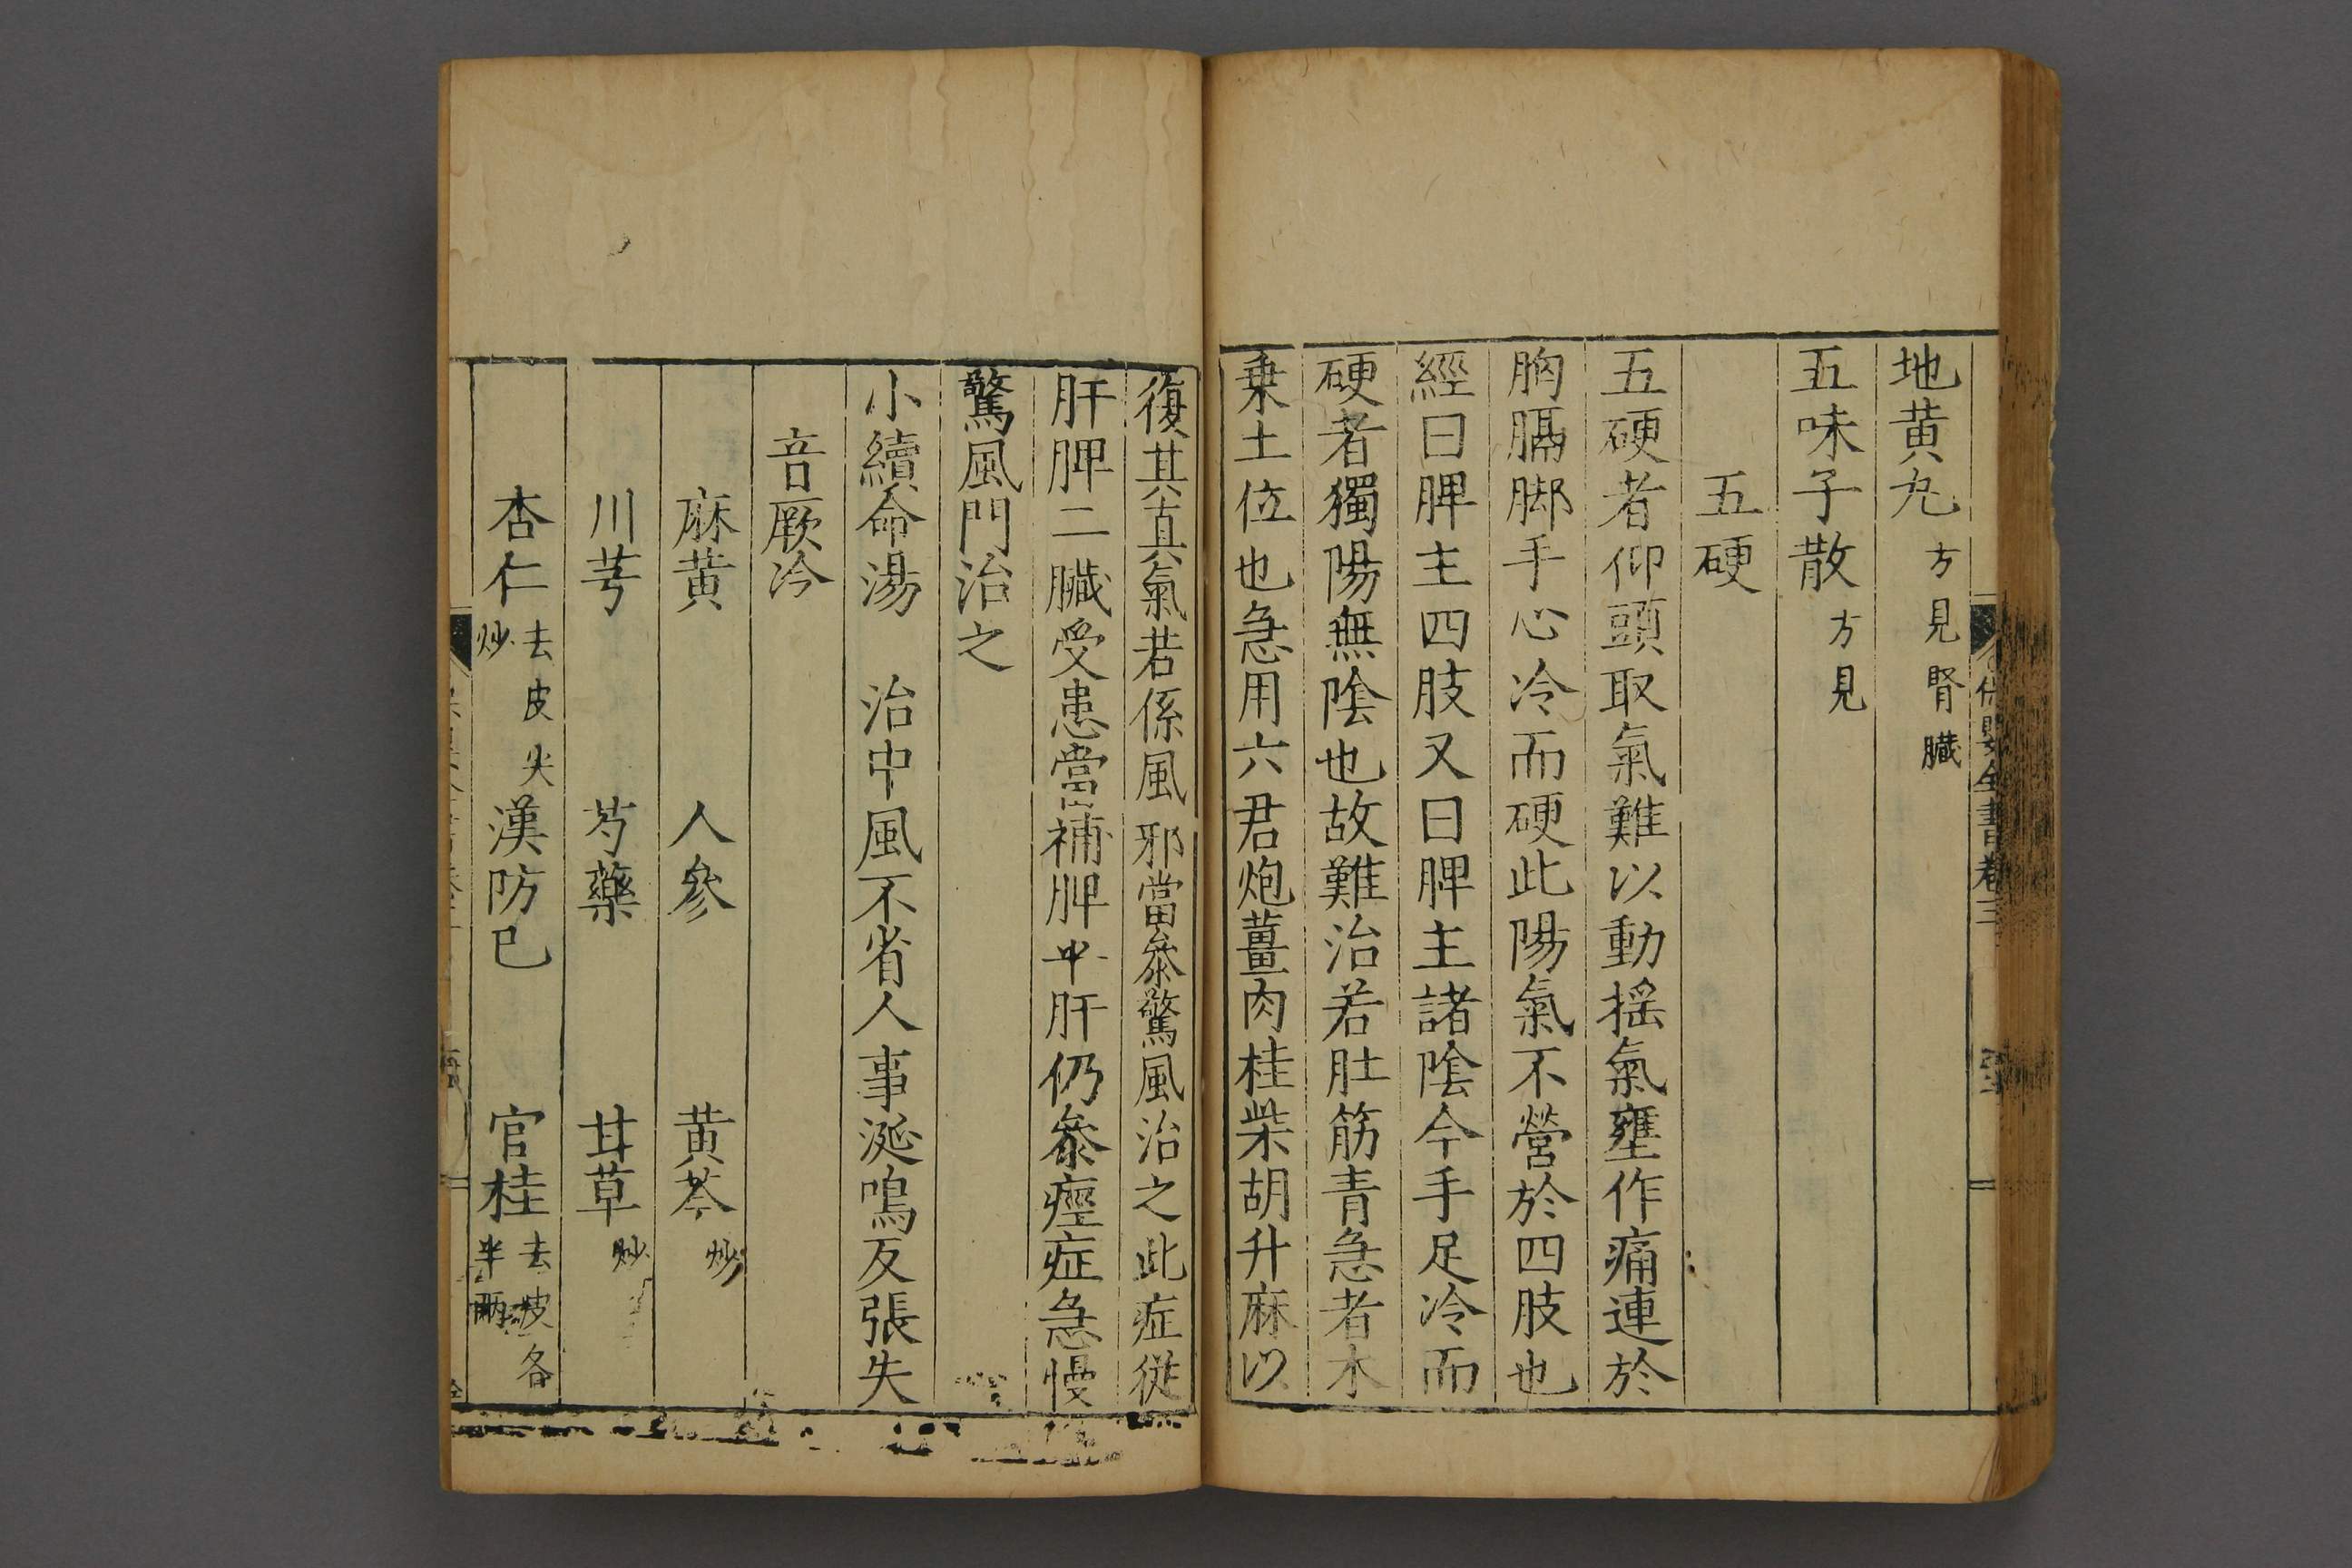 地黄丸方見腎臓
五味子散方見
五硬
五硬者仰頭取氣難以動揺氣壅作痛連於
胸膈脚手心冷而硬此陽氣不營於四肢也
經曰脾主四肢又曰脾主諸陰今手足冷而
硬者獨陽無陰也故難治若肚筋青急者木
乗土位也急用六君炮薑肉桂柴胡升麻以
復其真氣若係風邪當叅驚風治之此症従
肝脾二臓受患當補脾平肝仍叅痙症急慢
驚風門治之
小續命湯　治中風不省人事涎鳴反張失
音厥冷
麻黄　人參　黄芩炒
川芎　芍藥　甘草炒
杏仁去皮尖炒　漢防已　官桂去皮各半兩